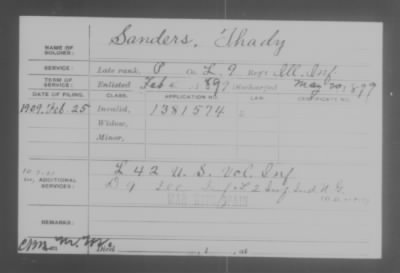 NAME OF SOLDIER: Sanders, Thady
SERVICE: Late rank, P Co. L, 9 Reg't Ill. Inf
TERM OF SERVICE: Enlisted Feb , 1897 Discharged May 20, 1899
DATE OF FILING. CLASS. APPLICATION NO. LAW. CERTIFICATE NO.
1909. Feb. 25 Invalid, 1381574
Widow,
Minor,
ADDITIONAL SERVICES: L 42 U. S. Vol. Inf
D 9 Inf + L 2 Ind N. G.
WAR SPAIN
REMARKS:
Died , 1 , at